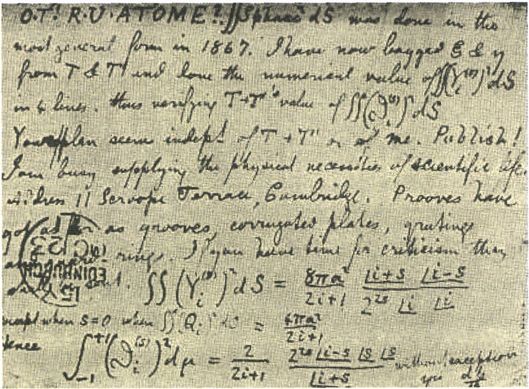 O.T! R.U. AT OME? ∬ Spharc² dS was done in the
most general form in 1867. I have now bagged ξ & η
from T & T' and done the numerical value of ∬(Y_i^(s))² dS
in 4 lines. thus verifying T+T''s value of ∬(ϑ_i^(s))² dS
Your plan seems indept of T + T' or of me. Publish!
I am busy supplying the physical necessities of scientific life.
Address 11 Scroope Terrace, Cambridge. Prooves have
as grooves, corrugated plates, gratings
rings. If you have time for criticism they
EDINBURGH
sent. ∬(Y_i^(s))² dS = 8πa²/(2i+1) |i+s |i-s / 2^2s |i |i
except when s=0 when ∬(Q_i)² dS = 4πa²/(2i+1)
hence ∫_{-1}^{+1} (ϑ_i^(s))² dμ = 2/(2i+1) 2^2s |i-s |s |s / |i+s without exception